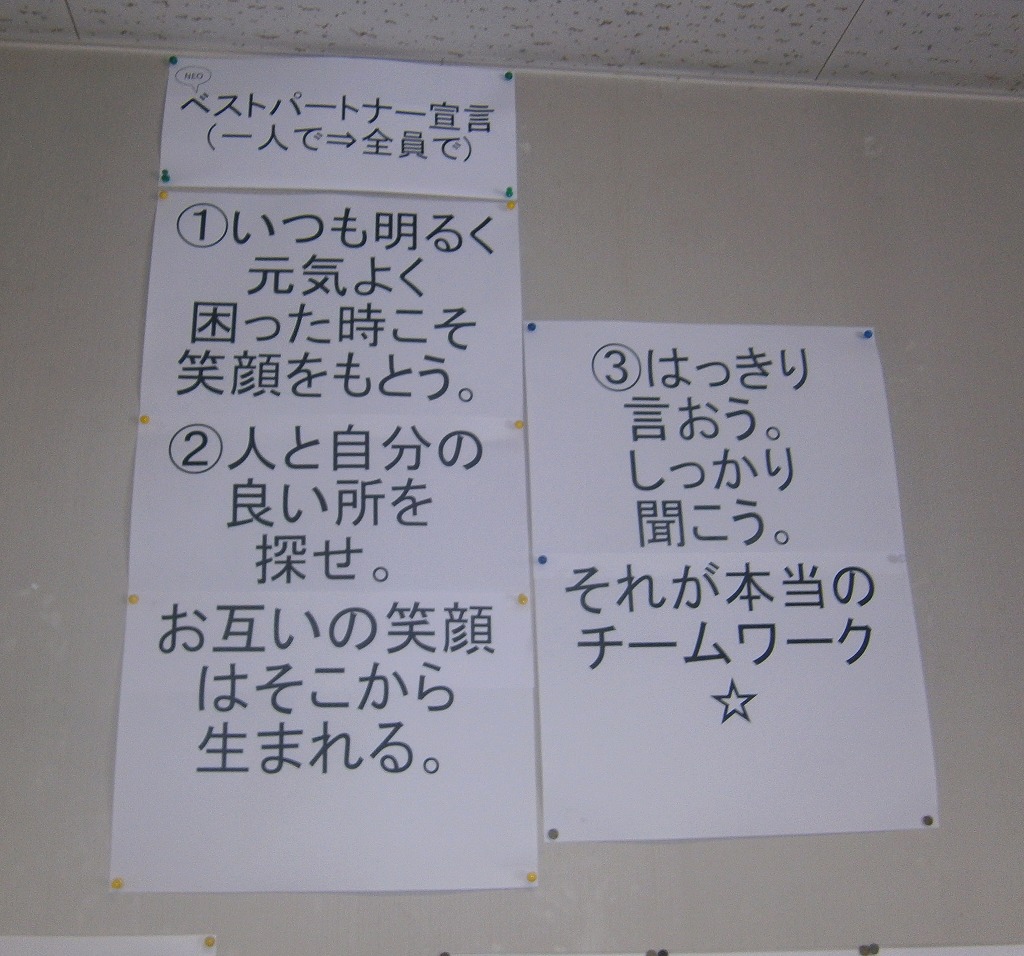 NEO
ベストパートナー宣言
(一人で⇒全員で)
①いつも明るく
元気よく
困った時こそ
笑顔をもとう。
②人と自分の
良い所を
探せ。
お互いの笑顔
はそこから
生まれる。
③はっきり
言おう。
しっかり
聞こう。
それが本当の
チームワーク
☆